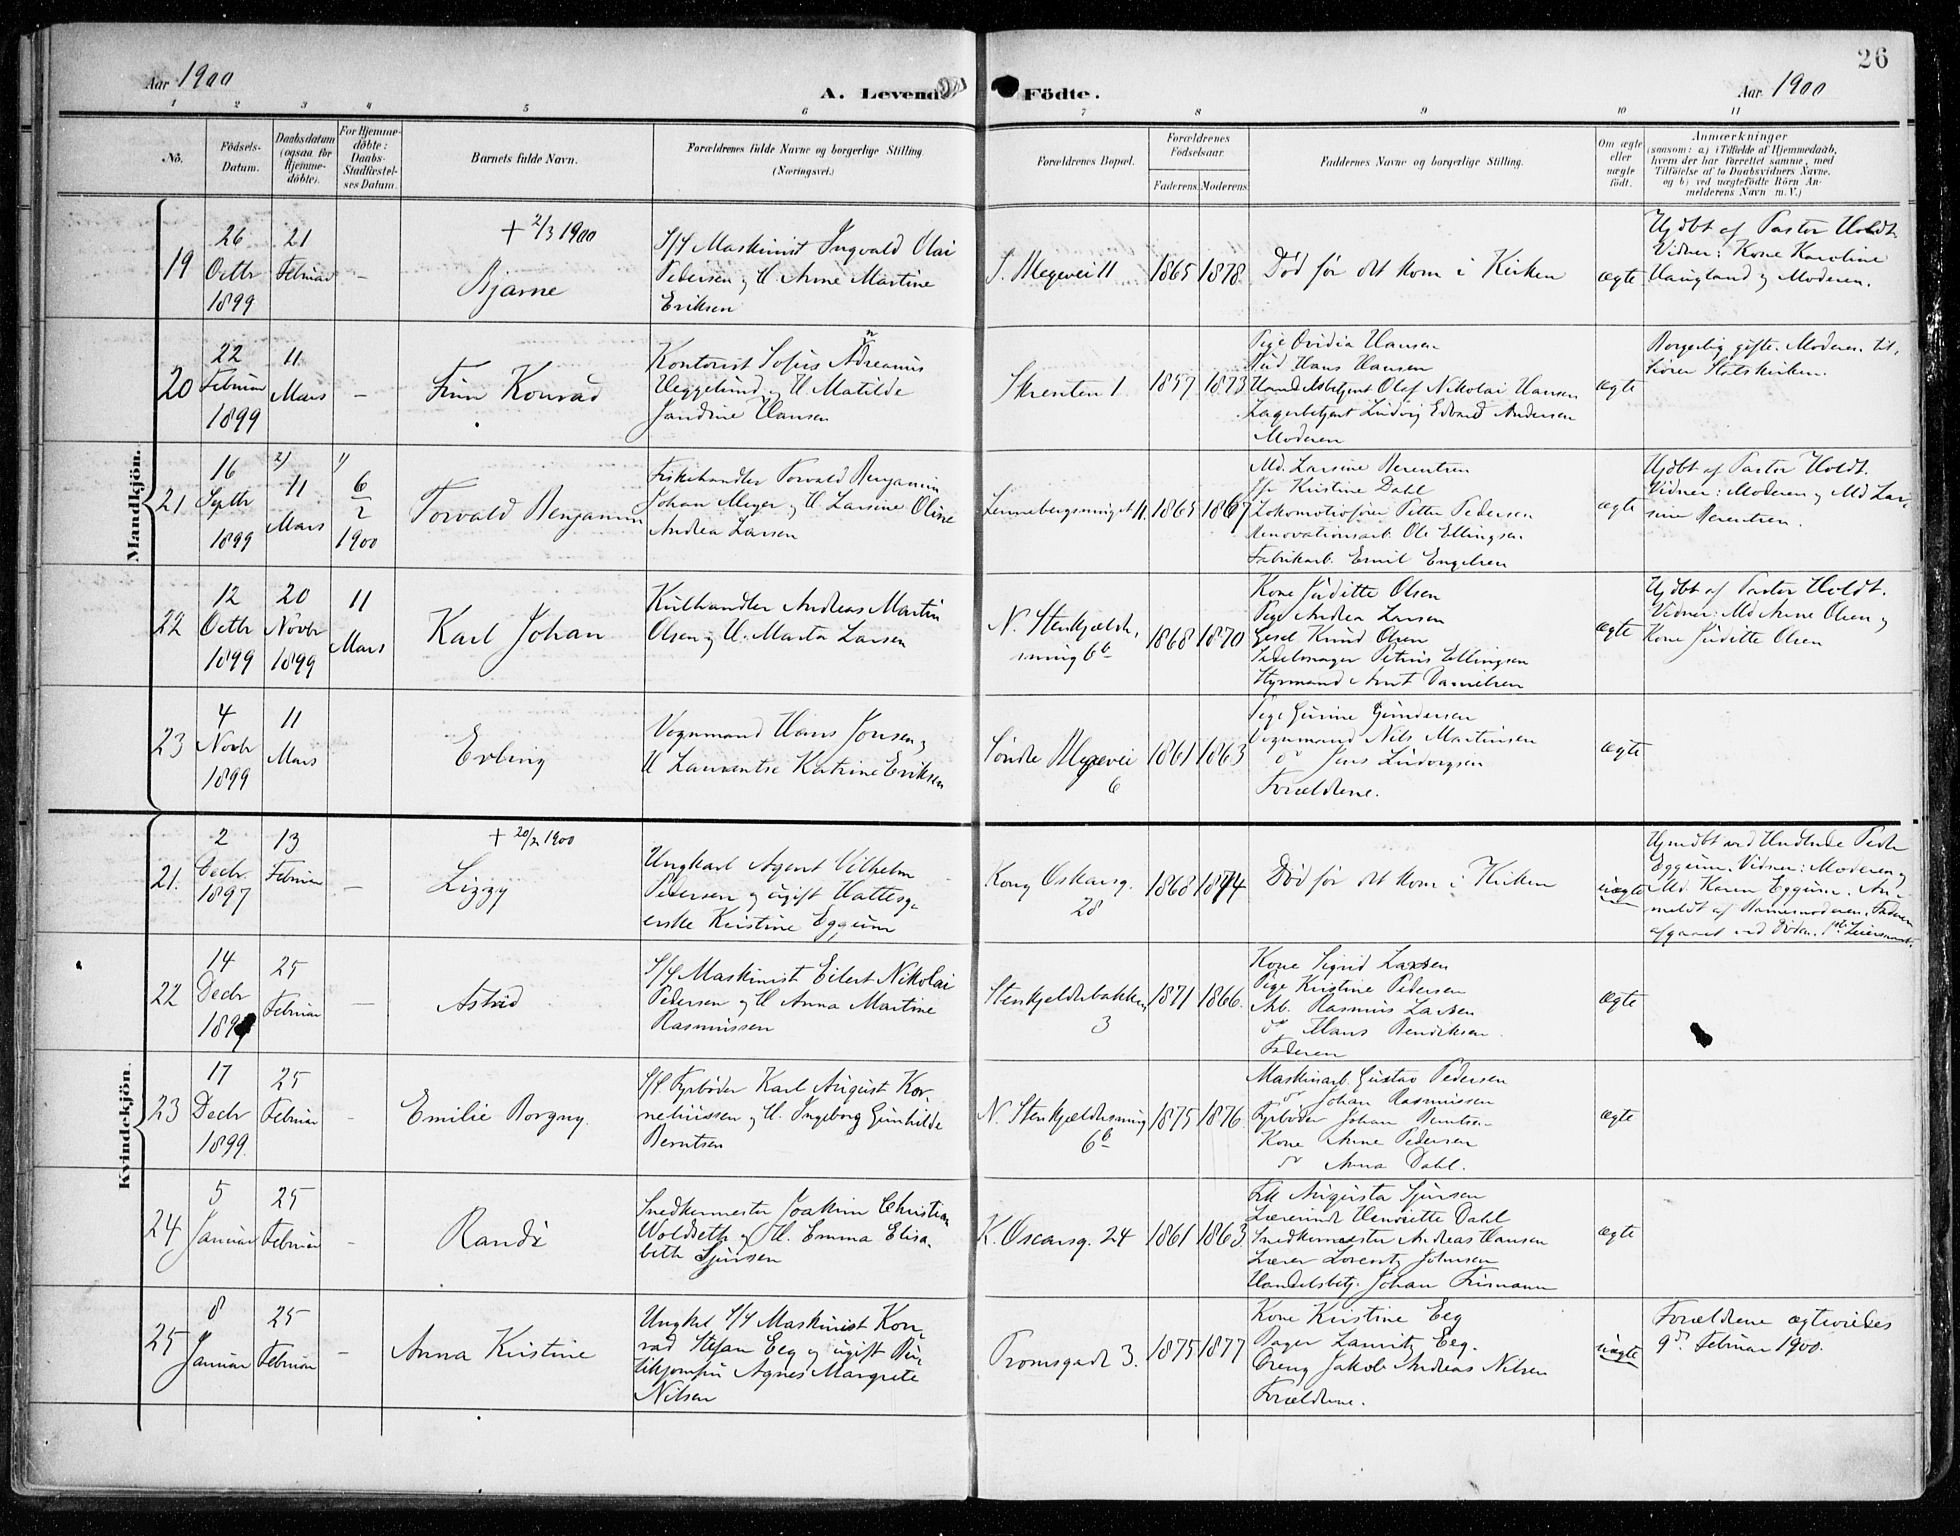 26
Aar 1900
A. Levende Födte.
Aar 1900
1 2 3 4 5 6 7 8 9 10 11
No.
Födsels-
Datum.
Daabsdatum
(ogsaa for
Hjemme-
döbte).
For Hjemme-
döbte:
Daabs-
Stadfæstel-
ses Datum.
Barnets fulde Navn.
Forældrenes fulde Navne og borgerlige Stilling.
(Næringsvei.)
Forældrenes Bopæl.
Forældrenes
Födselsaar.
Faderens. Moderens.
Faddernes Navne og borgerlige Stilling.
Om ægte
eller
uægte
födt.
Anmærkninger
(saasom: a) i Tilfælde af Hjemmedaab,
hvem der har forrettet samme, med
Tilföielse af to Daabsvidners Navne.
og b) ved uægtefödte Börn An-
melderens Navn m. V.)
Mandkjön.
19
26
Octbr
1899
21
Februar
–
+ 2/3 1900
Bjarne
S/S Maskinist Ingvald Olai
Pedersen og H. Anne Martine
Eriksen
S. Blegevei 11
1865 1878.
Död för det kom i Kirken
ægte
Hjdbt af Pastor Holdt.
Vidner: Kone Karoline
Haugland og Moderen.
20
22
Februar
1899
11
Mars
–
Finn Konrad
Kontorist Sofus Andreanus
Heggelund og H. Matilde
Jandine Hansen
Skrenten 1
1857 1873
Pige Ovidia Hansen
Hans Hansen
Handelsbetjent Olaf Nikolai Hansen
Lagerbetjent Ludvig Edvard Andersen
Moderen
ægte
Borgerlig gifte. Moderen til-
hörer Statskirken.
21
16
Septbr
1899
2)
11
Mars
1)
6
2
1900
Torvald Benjamin
Fiskehandler Torvald Benjamin
Johan Meyer og H. Larsine Oline
Andrea Larsen
11.
1865 1867
Md. Larsine Berentsen
Kristine Dahl
Lokomotivförer Petter Pedersen
Renovationsarb. Ole Ellingsen
Fabrikarb. Emil Engelsen
ægte
Hjdbt af Pastor Holdt.
Vidner: Moderen og Md Lar-
sine Berentsen.
22
12
Octbr
1899
20
Novbr
1899
11
Mars
Karl Johan
Kulhandler Andreas Martin
Olsen og H. Marta Larsen
N. Stenkjelder-
smug 6b
1868 1870
Kone Juditte Olsen
Pige Andrea Larsen
Gesel Knud Olsen
Sadelmager Petrus Ellingsen
Styrmand Arnt Danielsen
ægte
Hjdbt af Pastor Holdt.
Vidner: Md Anne Olsen og
Kone Juditte Olsen
23
4
Novbr
1899
11
Mars
Erling
Vognmand Hans Jonsen og
H Laurentse Katrine Eriksen
Söndre Blegevei
6
1861 1863
Pige Gurine Gundersen
Vognmand Nils Martinsen
do Jens Ludvigsen
Forældrene.
ægte
Kvindekjön.
21.
2
Decbr.
1897
13
Februar
–
+ 20/2 1900
Lizzy
Ungkarl Agent Vilhelm
Pedersen og ugift Hattesy-
erske Kristine Eggum
Kong Oskarsg.
28
1868 1874
Död för det kom i Kirken
uægte
Hjmdbt ved Peder
Eggum. Vidner: Moderen og
Md. Karen Eggum. An-
meldt af Barnemoderen. Faderen
22
14
Decbr
1899
25
Februar
–
Astrid
S/S Maskinist Eilert Nikolai
Pedersen og H Anna Martine
Rasmussen
Stenkjelderbakken
3
1871 1866.
Kone Sigrid Larsen
Pige Kristine Pedersen
Arb. Rasmus Larsen
do Hans Bendiksen
Faderen
ægte
23
17
Decbr
1899.
25
Februar
–
Emilie Borgny.
S/S. Fyrböder Karl August Kor-
neliussen og H. Ingeborg Gunhilde
Berntsen
N. Stenkjeldersmug
6b
1875 1876.
Maskinarb. Gustav Pedersen
do Johan Rasmussen
Fyrböder Johan Berntsen
Kone Anne Pedersen
do Anna Dahl.
ægte
24
5
Januar
25
Februar
–
Randi
Snedkermester Joakim Christian
Woldseth og H. Emma Elisa-
beth Sjursen
K. Oscarsg. 24
1861 1863.
Frk Augusta Sjursen
Lærerinde Henriette Dahl
Snedkermester Andreas Hansen
Lærer Lorentz Johnsen
Handelsbetj. Johan Frimann
ægte
25
8
Januar
25
Februar
–
Anna Kristine
Ungkl S/S Maskinist Kon-
rad Stefan Eeg og ugift Bu-
tikjomfru Agnes Margrete
Nilsen
Tromsgade 3.
1875 1877
Kone Kristine Eeg
Bager Lauritz Eeg.
Jakob Andreas Nilsen
Forældrene.
uægte
Forældrene ægteviedes
9de Februar 1900.